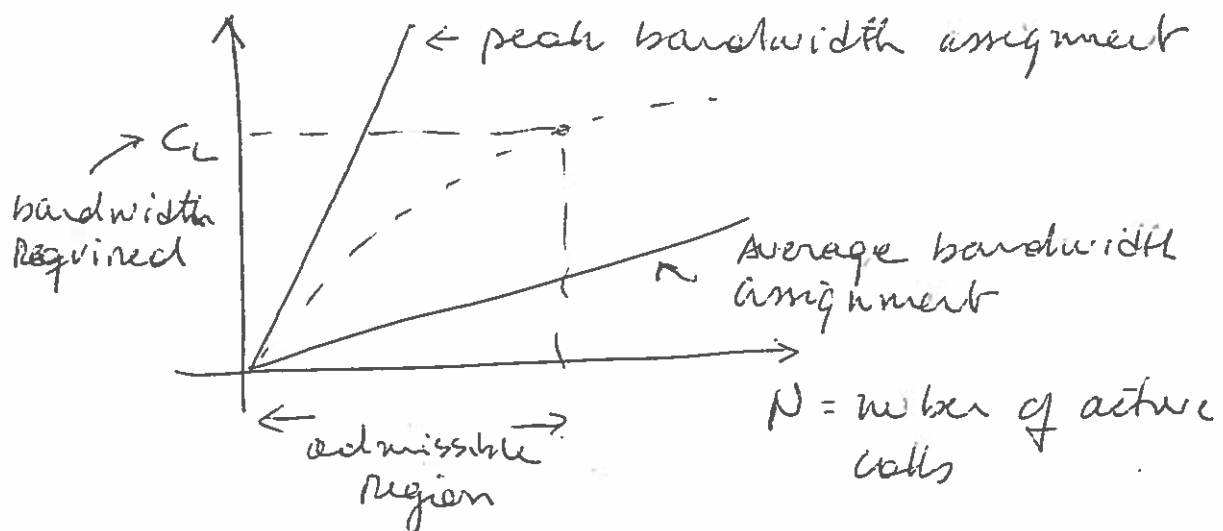 ← peak bandwidth assignment
C_L
bandwidth
required
Average bandwidth
assignment
N = number of active
calls
admissible
region